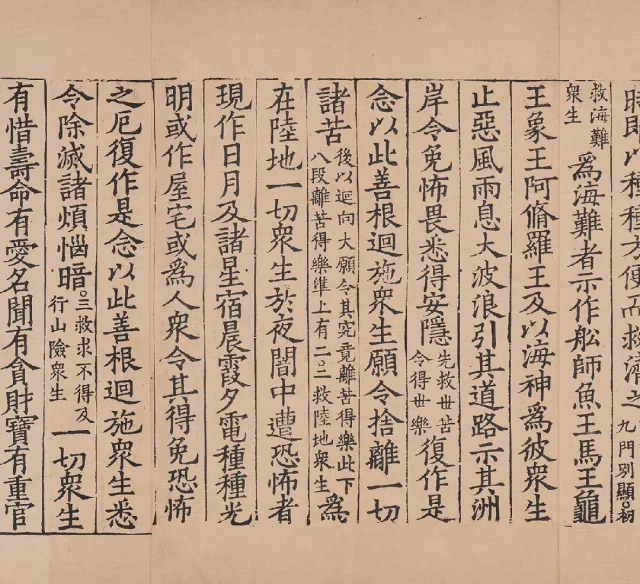 時即以種種方便而救濟之九門別顯○初
救海難衆生為海難者示作舩師魚王馬王龜
王象王阿脩羅王及以海神為彼衆生
止惡風雨息大波浪引其道路示其洲
岸令免怖畏悉得安隱先救世苦令得世樂復作是
念以此善根迴施衆生願令捨離一切
諸苦後以迴向大願令其究竟離苦得樂此下八段離苦得樂準上有二○二救陸地衆生為
在陸地一切衆生於夜闇中遭恐怖者
現作日月及諸星宿晨霞夕電種種光
明或作屋宅或為人衆令其得免恐怖
之厄復作是念以此善根迴施衆生悉
令除滅諸煩惱暗○三救求不得及行山險衆生一切衆生
有惜壽命有愛名聞有貪財寶有重官